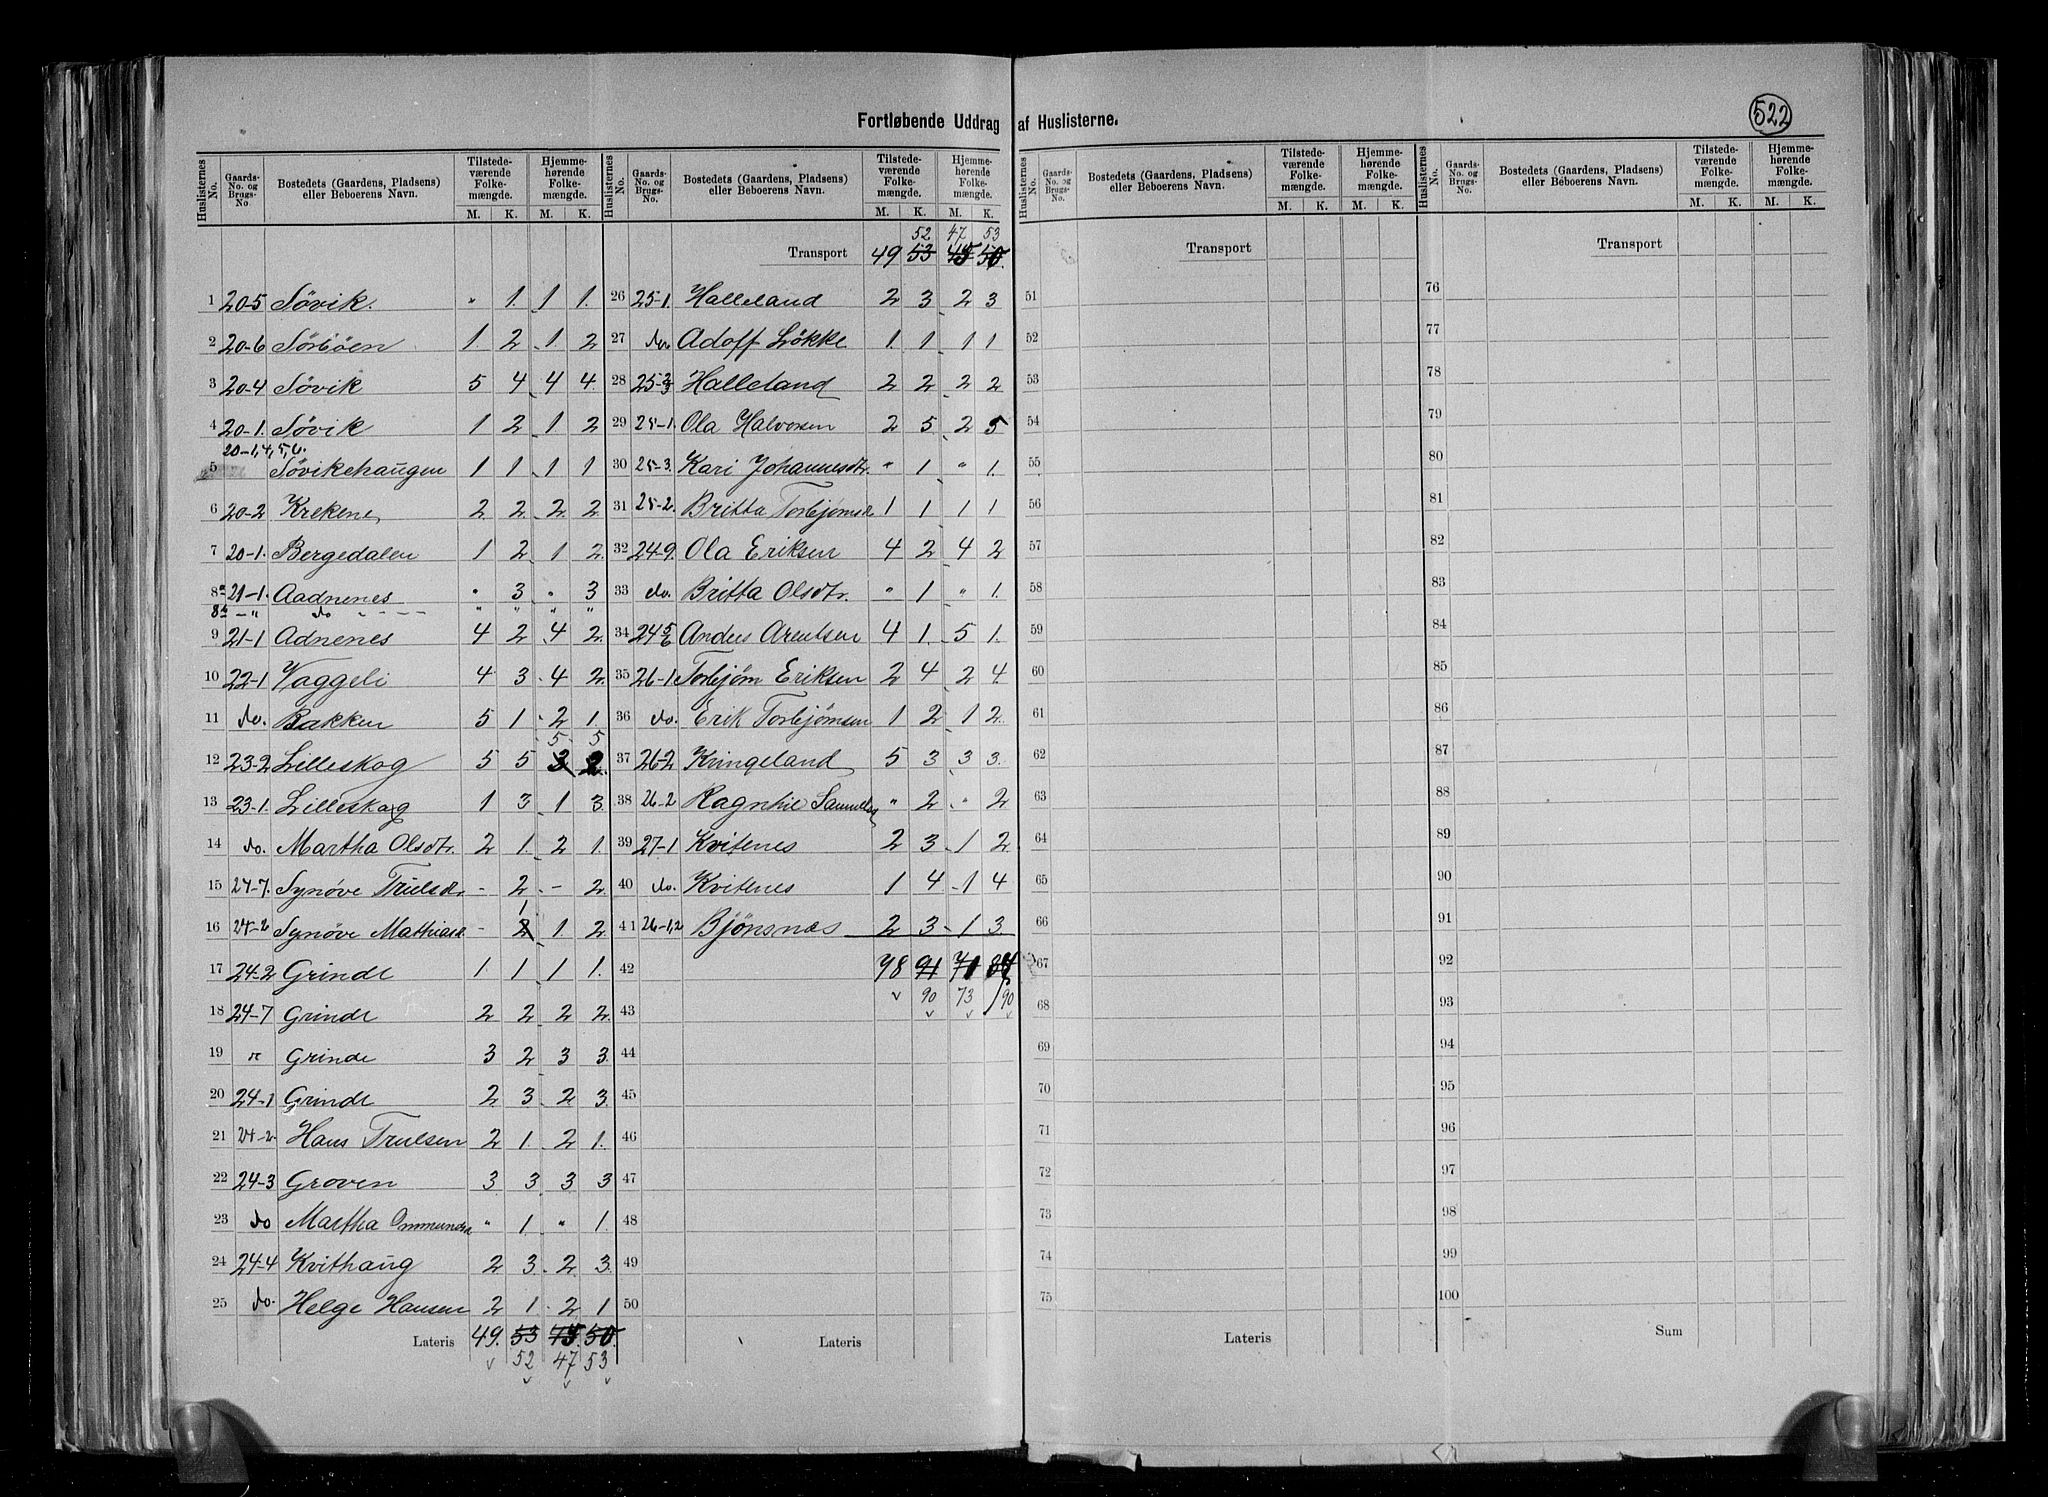 Fortløbende Uddrag af Huslisterne.
522
Huslisternes No. | Gaards-No. og Brugs-No. | Bostedets (Gaardens, Pladsens) eller Beboerens Navn. | Tilstedeværende Folkemængde. M. K. | Hjemmehørende Folkemængde. M. K.
1 20-5 Søvik. " 1. 1 1.
2 20-6 Sørbøen 1 2 1. 2
3 20-4 Søvik 5 4 4 4.
4 20-1. Søvik 1 2 1 2
5 20-1,4,5,6. Søvikehaugen 1 1 1 1
6 20-2 Krekene 2 2 2 2
7 20-1. Bergedalen 1 2 1 2.
8a 21-1. Aadnenes " 3 " 3
8b -" do " " " "
9 21-1 Adnenes 4 2 4 2
10 22-1 Vaggeli 4 3 4 2
11 do. Bakken 5 1 2 1.
5 5
12 23-2 Lilleskog 5 5 3 2
13 23-1. Lilleskog 1 3 1 3
14 do. Martha Olsdtr. 2 1. 2 1.
15 24-7. Synøve Trulsdr - 2 - 2
1
16 24-2 Synøve Mathiasd - 2 1. 2
17 24-2 Grinde 1 1 1 1.
18 24-7 Grinde 2 2 2 2.
19 " Grinde 3 2 3 3.
20 24-1 Grinde 2 3 2 3.
21 24-2. Hans Trulsen 2 1. 2 1.
22 24-3 Groven 3 3 3 3
23 do Martha Ommundsd " 1 " 1.
24 24-4 Kvithaug 2 3 2 3.
25 do. Helge Hansen 2 1 2 1
Lateris 49. 53 45 50.
52 47 53
52 47 53
Transport 49 53 45 50.
26 25-1. Halleland 2 3 2 3
27 do. Adolf Løkke 1. 1 1 1
28 25-2/3 Halleland 2 2 2 2
29 25-1. Ola Halvorsen 2 5 2 5
30 25-3. Kari Johannesdtr. " 1 " 1.
31 25-2. Britta Torbjørnsd 1 1 1 1
32 24-9. Ola Eriksen 4 2 4 2
33 do. Britta Olsdtr. " 1 " 1.
34 24-5/6 Anders Arentsen 4 1. 5 1.
35 26-1 Torbjørn Eriksen 2 4 2 4.
36 do. Erik Torbjørnsen 1 2 1 2
37 26-2 Kvingeland 5 3 3 3.
38 26-2 Ragnhil Samuelsd " 2 " 2
39 27-1 Kvitenes 2 3 1 2
40 do. Kvitenes 1 4 1 4
41 26-1,2 Bjønsnæs 2 3 1 3.
42 78 91 71 84
43 90 73 90
44
45
46
47
48
49
50
Lateris
Transport
51
52
53
54
55
56
57
58
59
60
61
62
63
64
65
66
67
68
69
70
71
72
73
74
75
Lateris
Transport
76
77
78
79
80
81
82
83
84
85
86
87
88
89
90
91
92
93
94
95
96
97
98
99
100
Sum